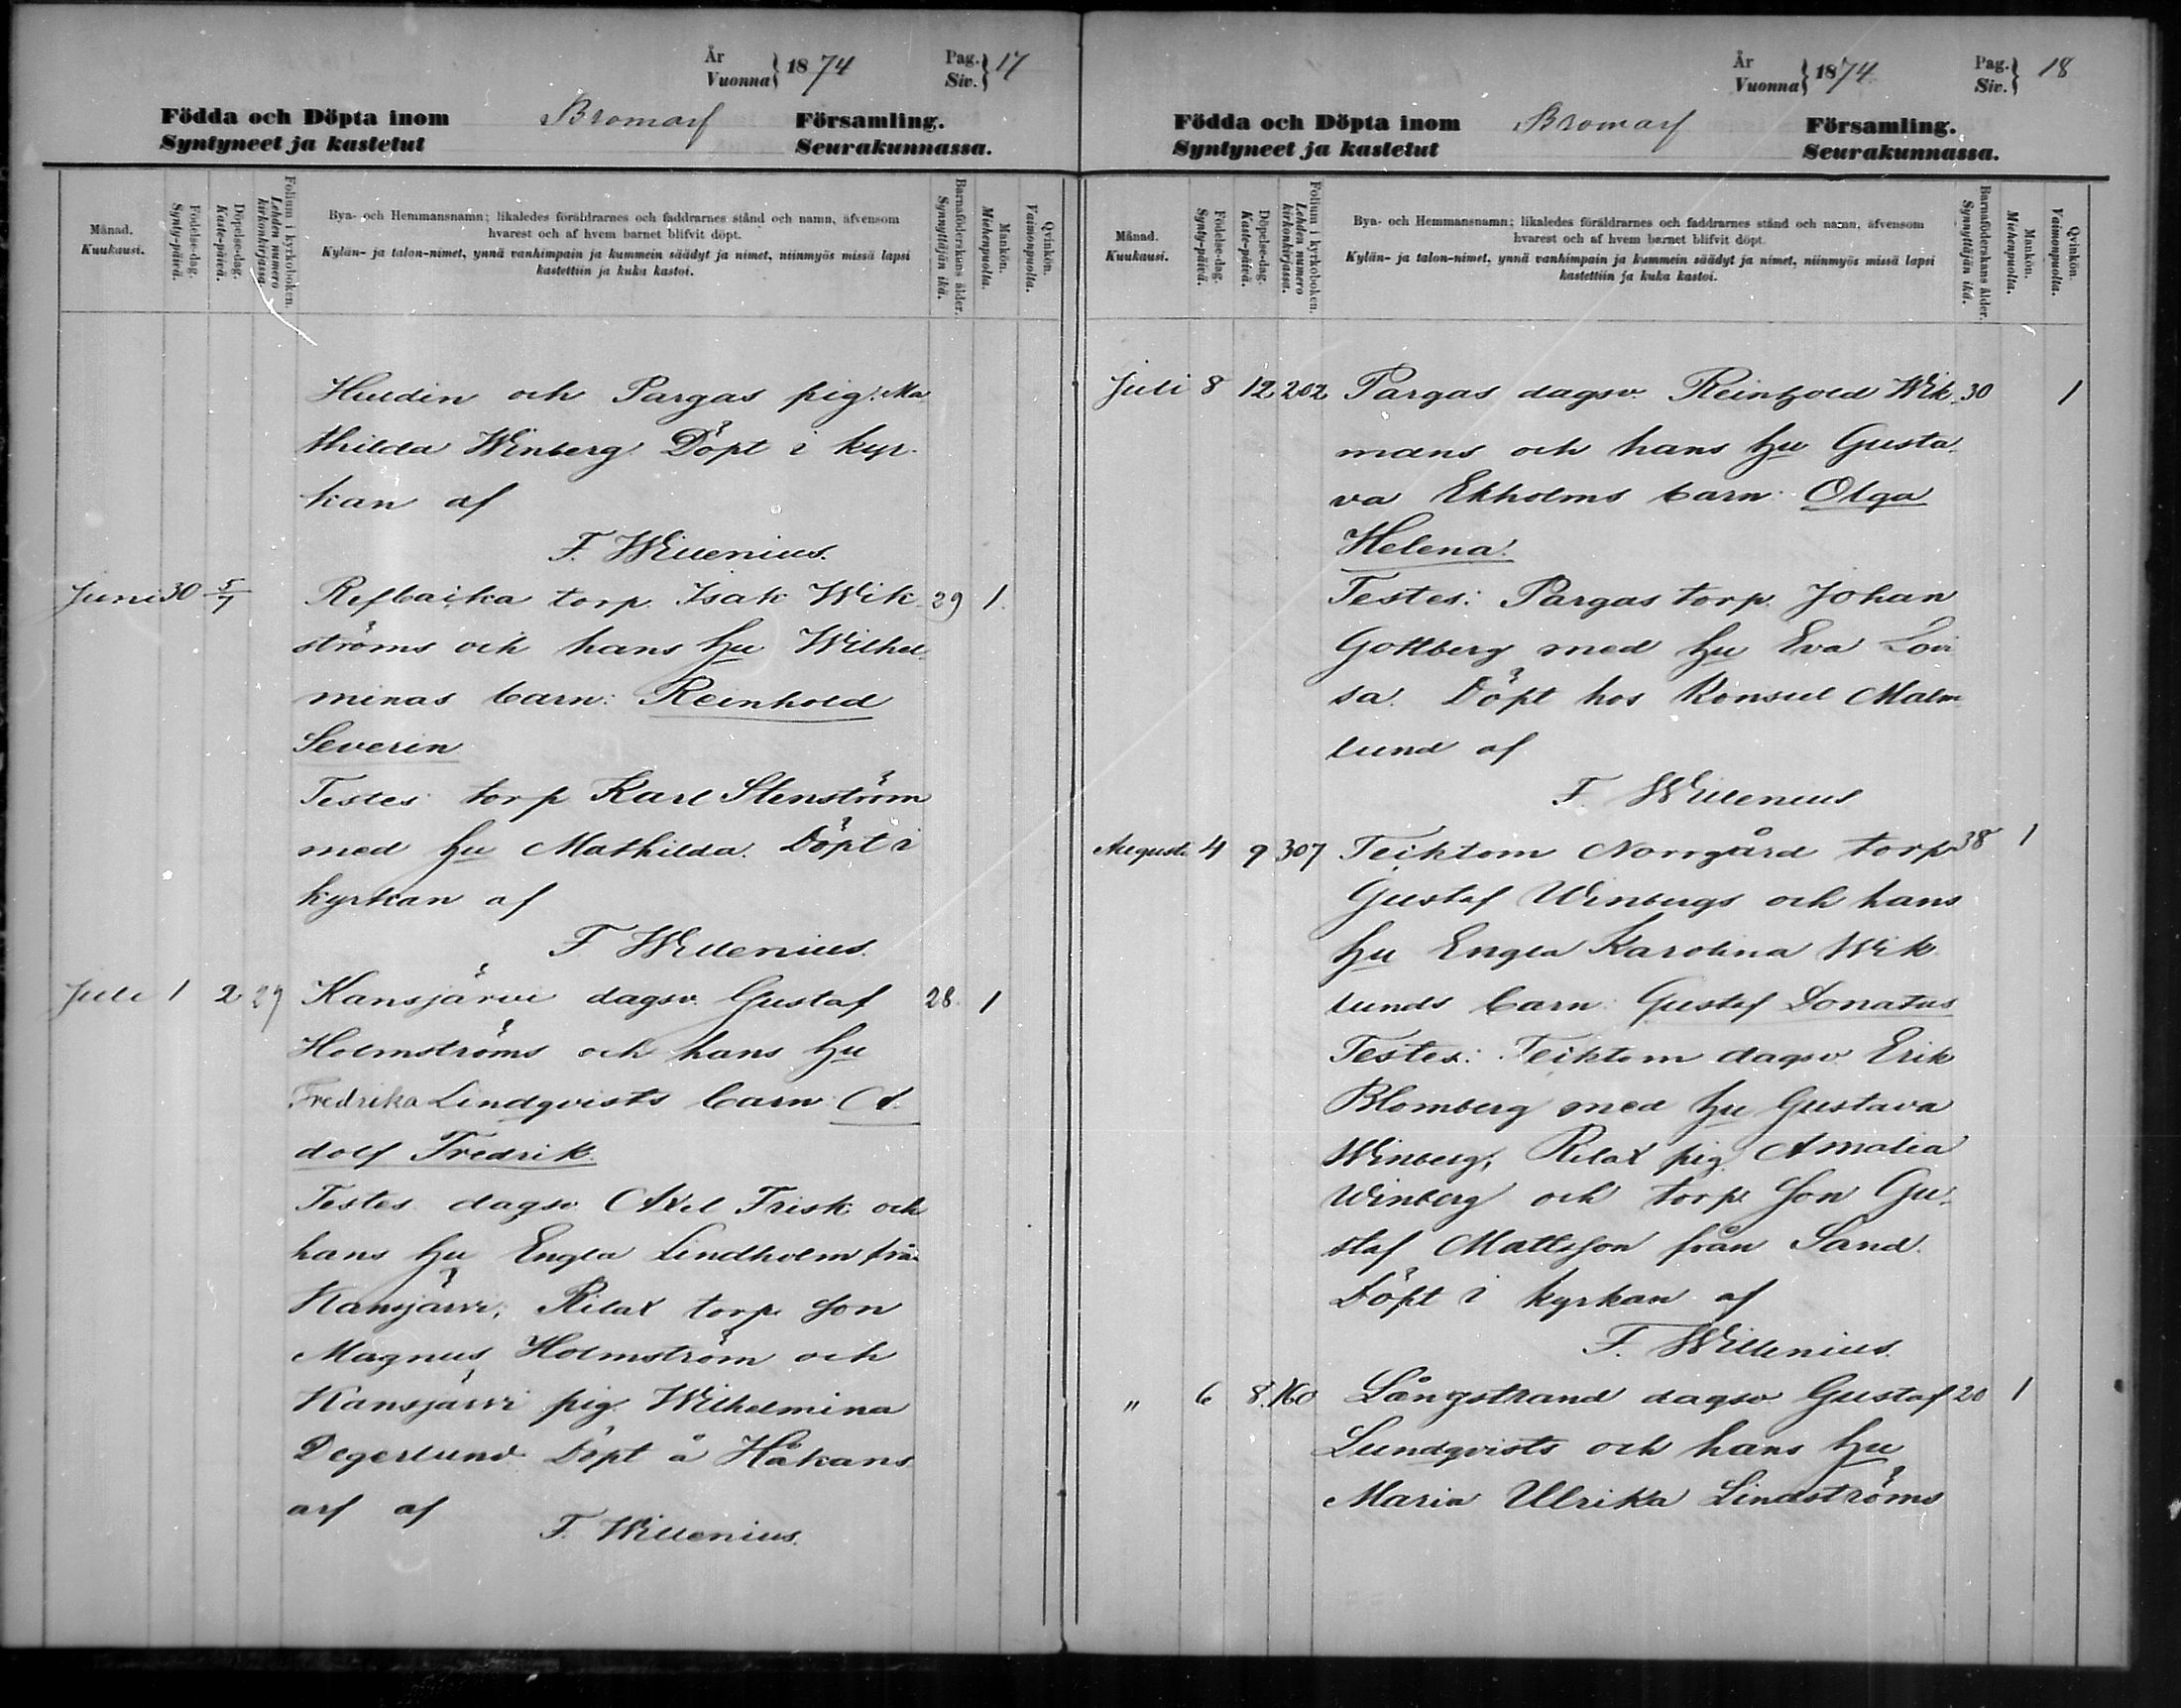 År
Vuonna } 1874
Pag.
Siv. } 17
Födda och Döpta inom Bromarf Församling.
Syntyneet ja kastetut Seurakunnassa.
Månad.
Kuukausi.
Födelse-dag.
Synty-päivä.
Döpelse-dag.
Kaste-päivä.
Folium i kyrkoboken.
Lehden numero
kirkonkirjassa.
Bya- och Hemmansnamn; likaledes föräldrarnes och faddrarnes stånd och namn, äfvensom
hvarest och af hvem barnet blifvit döpt.
Kylän- ja talon-nimet, ynnä vanhimpain ja kummein säädyt ja nimet, niinmyös missä lapsi
kastettiin ja kuka kastoi.
Barnaföderskans ålder.
Synnyttäjän ikä.
Mankön.
Miehenpuolia.
Qvinkön.
Vaimonpuolia.
Huldin och Pargas pig. Ma
thilda Winberg. Döpt i kyr-
kan af
F. Willenius.
Juni 30 5/7 torp. Isak Wik- 29 1.
ströms och hans hu Wilhel-
minas barn: Reinhold
Severin
Testes torp Karl Stenström
med hu Mathilda. Döpt i
kyrkan af
F Willenius.
Juli 1 2 29 Kansjärvi dagsv. Gustaf 28. 1
Holmströms och hans hu
Fredrika Lindqvists barn A-
dolf Fredrik.
Testes dagsv. Axel Frisk och
hans hu Engla Lindholm från
Kansjärvi, Rilax torp. son
Magnus Holmström och
Kansjärvi pig. Wilhelmina
Degerlund Döpt å Håkans
arf af
F. Willenius.
År
Vuonna } 1874
Pag.
Siv. } 18
Födda och Döpta inom Bromarf Församling.
Syntyneet ja kastetut Seurakunnassa.
Månad.
Kuukausi.
Födelse-dag.
Synty-päivä.
Döpelse-dag.
Kaste-päivä.
Folium i kyrkoboken.
Lehden numero
kirkonkirjassa.
Bya- och Hemmansnamn; likaledes föräldrarnes och faddrarnes stånd och namn, äfvensom
hvarest och af hvem barnet blifvit döpt.
Kylän- ja talon-nimet, ynnä vanhimpain ja kummein säädyt ja nimet, niinmyös missä lapsi
kastettiin ja kuka kastoi.
Barnaföderskans ålder.
Synnyttäjän ikä.
Mankön.
Miehenpuolia.
Qvinkön.
Vaimonpuolia.
Juli 8 12 202 Pargas dagsv. Reinhold Wik- 30 1
mans och hans hu Gusta-
va Ekholms barn: Olga
Helena.
Testes: Pargas torp. Johan
Gottberg med hu Eva Lovi
sa. Döpt hos Konsul Malm
lund af
F. Willenius
Augusti 4 9 307 Teiktom Norrgård torp 38 1
Gustaf Winbergs och hans
hu Engla Karolina Wik
lunds barn: Gustaf Donatus
Testes: Teiktom dagsv. Erik
Blomberg med hu Gustava
Winberg, Rilax pig. Amalia
Winberg och torp. son Gu-
staf Mattsson från Sand.
Döpt i kyrkan af
F. Willenius.
" 6 8. 160 Långstrand dagsv. Gustaf 20 1
Lundqvists och hans hu
Maria Ulrika Lindströms